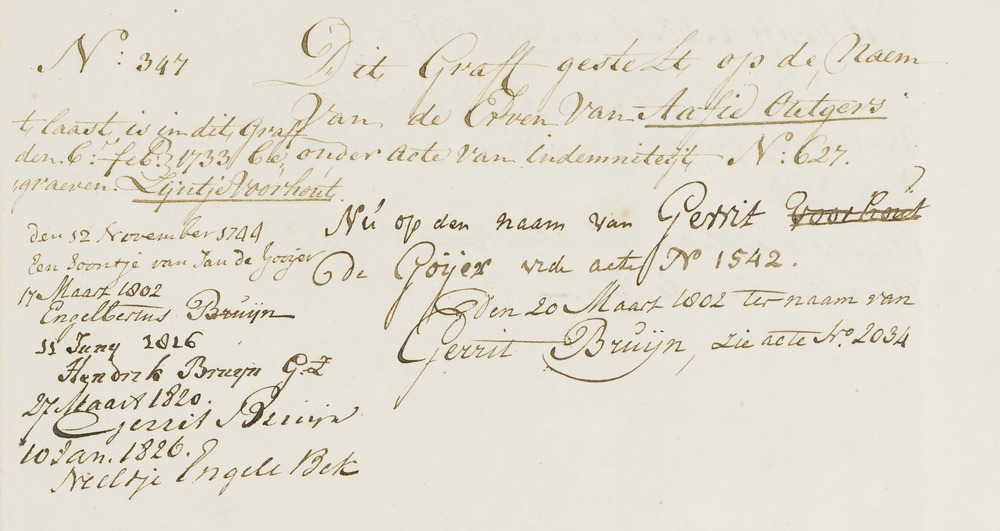 N.º 347
Dit Graff gestelt op de Naem
Van de Erven Van Aafie Outgers
onder acte van Indemniteijt N.º 627.
t, laast, is in dit, Graff
den 6.ⁿ feb.r 1733 be
graeven. Lijntje Voorhout
Nú op den naam van Gerrit Voorhout
de Goijer vide acte Nº 1542.
Den 20 Maart 1802 ter naam van
Gerrit Bruijn, zie acte Nº 2034
den 12 November 1744
Een Soontje van Jan de Goijer
17 Maart 1802
Engelbertus Bruijn
11 Juny 1816
Hendrik Bruijn G.Z
27 Maart 1820.
Gerrit Bruijn
10 Jan. 1826.
Neeltje Engele Bek